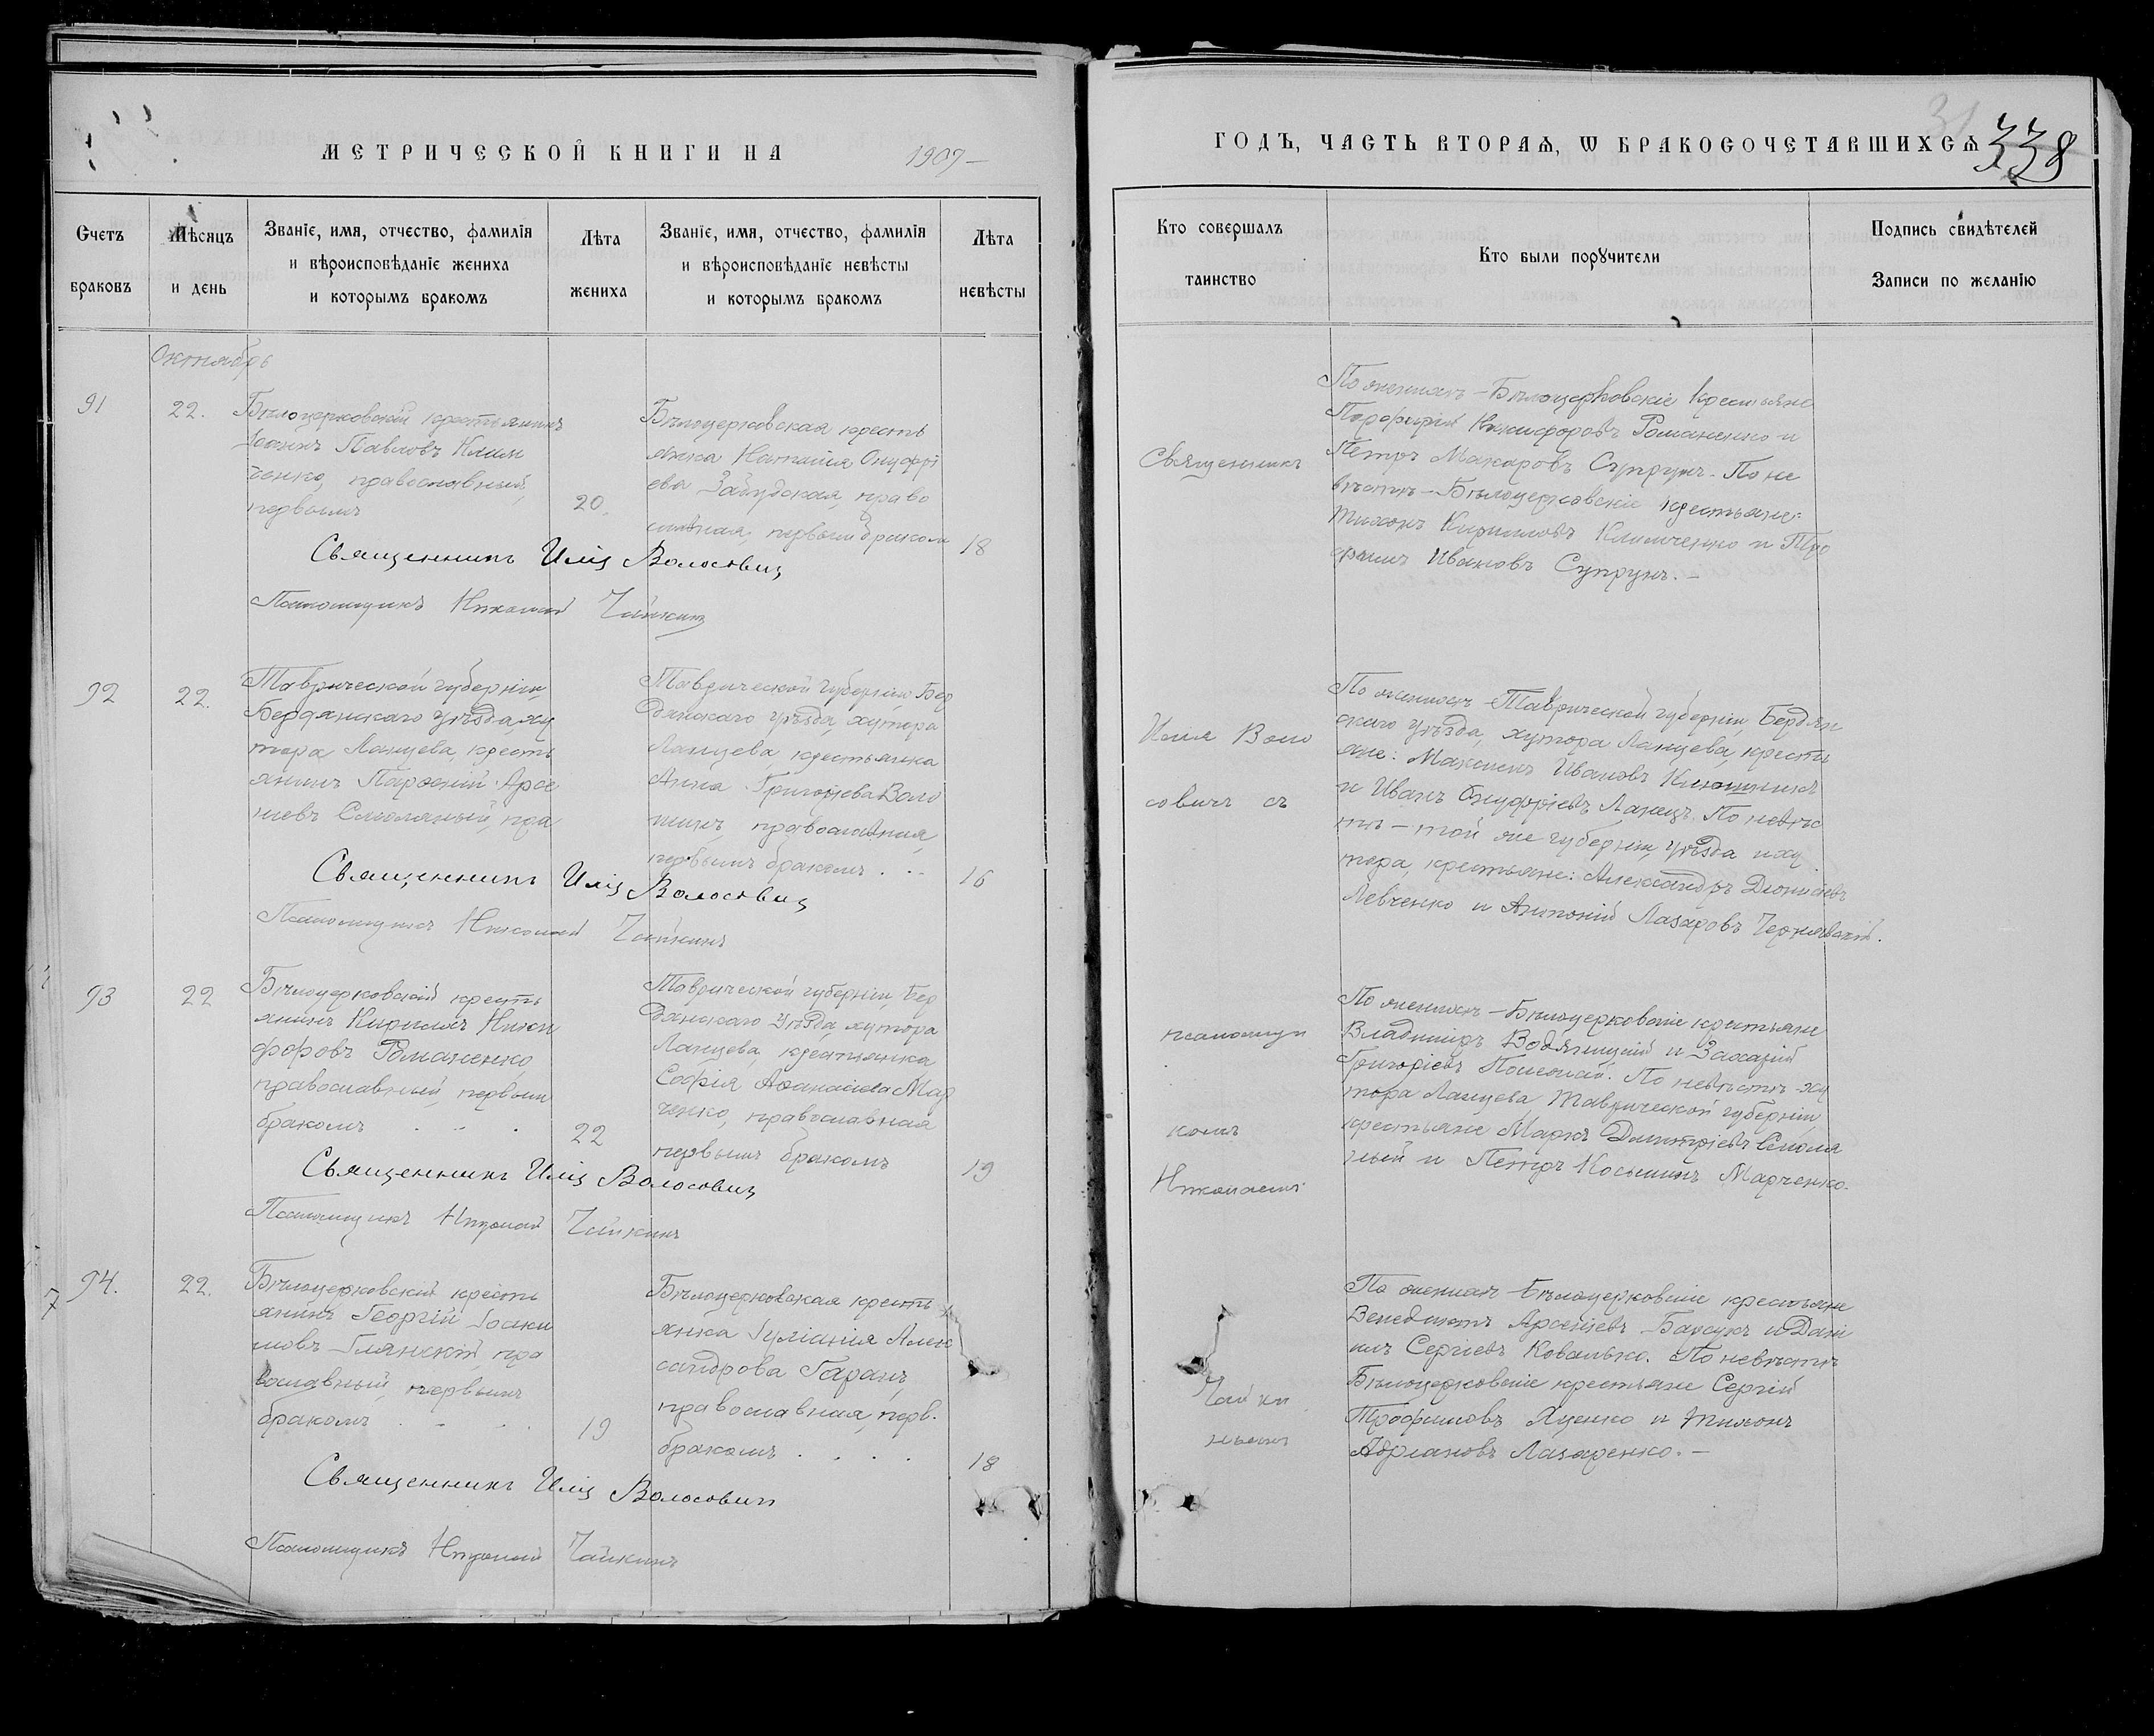 МЕТРИЧЕСКОЙ КНИГИ НА 1907
Счетъ браковъ
Мѣсяцъ и день
Званіе, имя, отчество, фамилія и вѣроисповѣданіе жениха и которымъ бракомъ
Лѣта жениха
Званіе, имя, отчество, фамилія и вѣроисповѣданіе невѣсты и которымъ бракомъ
Лѣта невѣсты
Октябрь
91
22.
Бѣлоцерковскій крестьянинъ
Іоаннъ Павловъ Клим
ченко, православный,
первымъ
20.
Бѣлоцерковская кресть
янка Наталія Онуфрі
ева Забудская, право
славная, первымъ бракомъ
18
Священникъ Илія Волосовичъ
Псаломщикъ Николай Чайкинъ
92
22.
Таврической губерніи,
Бердянскаго уѣзда, ху
тора Ланцева, кресть
янинъ Парѳеній Арсе
ніевъ Смоляный, пра
Таврической губерніи, Бер
дянскаго уѣзда, хутора
Ланцева, крестьянка
Анна Григорьева Воло
шинъ, православная,
первымъ бракомъ . .
16
Священникъ Илія Волосовичъ
Псаломщикъ Николай Чайкинъ
93
22
Бѣлоцерковскій кресть
янинъ Кириллъ Ники
форовъ Романенко,
православный, первым
бракомъ . . .
22
Таврической губерніи, Бер
дянскаго уѣзда, хутора
Ланцева, крестьянка
Софія Аѳанасіева Мар
ченко, православная
первымъ бракомъ
19
Священникъ Илія Волосовичъ
Псаломщикъ Николай Чайкинъ
94.
22.
Бѣлоцерковскій кресть
янинъ Георгій Іоаки
мовъ Глянскій, пра
вославный, первымъ
бракомъ . . .
19
Бѣлоцерковская кресть
янка Іуліанія Алек
сандрова Гаранъ,
православная, перв.
бракомъ . . . .
18
Священникъ Илія Волосовичъ
Псаломщикъ Николай Чайкинъ
7
ГОДЪ, ЧАСТЬ ВТОРАѦ, Ѡ БРАКОСОЧЕТАВШИХСѦ
338
Кто совершалъ таинство
Кто были порꙋчители
Подпись свидѣтелей Записи по желанію
Священникъ
Илія Воло
совичъ съ
псаломщи
комъ
Николаемъ
Чайки
нымъ
По женихѣ – Бѣлоцерковскіе крестьяне
Порфирій Никифоровъ Романенко и
Петръ Макаровъ Супрунъ. По не
вѣстѣ – Бѣлоцерковскіе крестьяне:
Тихонъ Кирилловъ Климченко и Тро
фимъ Ивановъ Супрунъ. –
По женихѣ – Таврической губерніи, Бердян
скаго уѣзда, хутора Ланцева, кресть
яне: Максимъ Ивановъ
и Иванъ Онуфріевъ Ланецъ. По невѣс
тѣ – той же губерніи, уѣзда и ху
тора, крестьяне: Александръ Діонисіевъ
Левченко и Антоній Лазаровъ Чернявскій.
По женихѣ – Бѣлоцерковскіе крестьяне
Владиміръ Водяницкій и Захарій
Григоріевъ По невѣстѣ – ху
тора Ланцева, Таврической губерніи,
крестьяне Маркъ Димитріевъ Смоля
ный и Петръ Косьминъ Марченко.
По женихѣ – Бѣлоцерковскіе крестьяне
Венедиктъ Арсеніевъ Барсукъ и Дані
илъ Сергіевъ Ковалько. По невѣстѣ
Бѣлоцерковскіе крестьяне Сергій
Трофимовъ Яценко и Тихонъ
Адріановъ Лазаренко. –